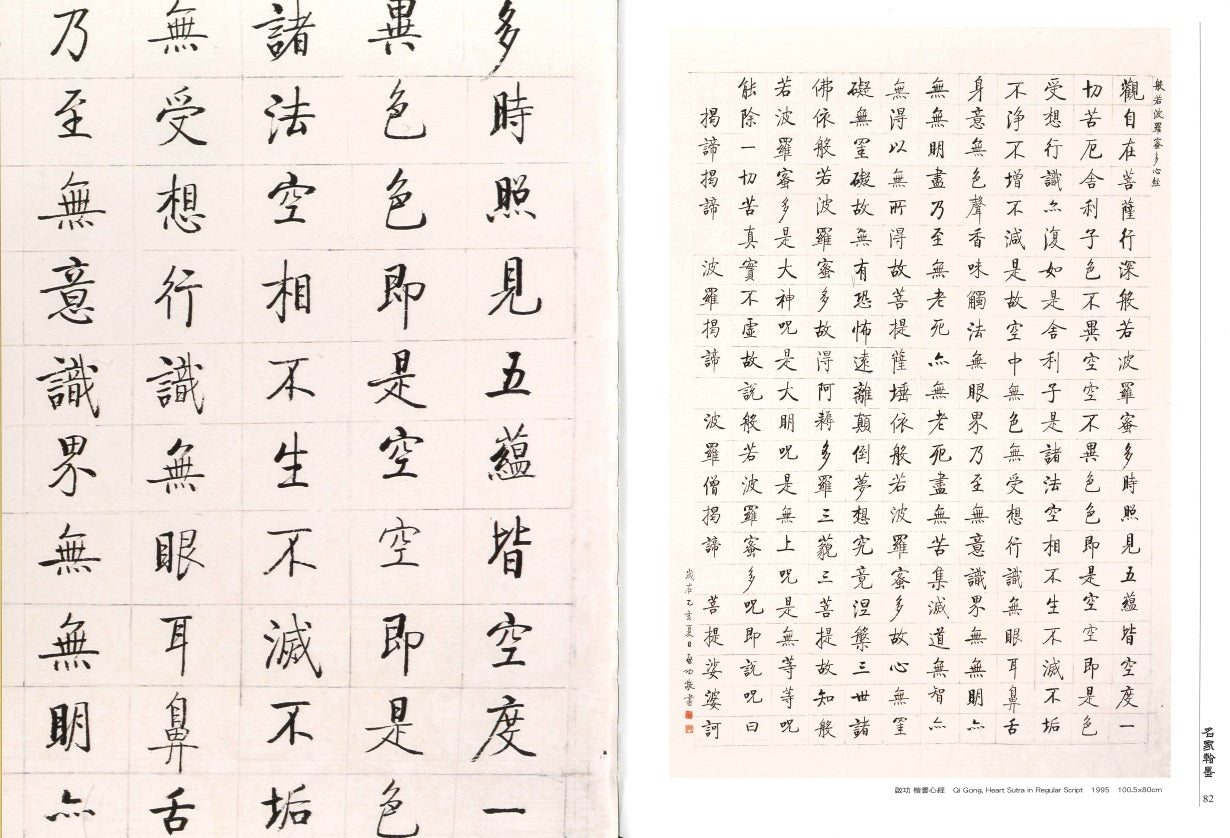 多時照見五蘊皆空度一
異色色即是空空即是色
諸法空相不生不滅不垢
無受想行識無眼耳鼻舌
乃至無意識界無無明亦
般若波羅蜜多心經
觀自在菩薩行深般若波羅蜜多時照見五蘊皆空度一
切苦厄舍利子色不異空空不異色色即是空空即是色
受想行識亦復如是舍利子是諸法空相不生不滅不垢
不淨不增不減是故空中無色無受想行識無眼耳鼻舌
身意無色聲香味觸法無眼界乃至無意識界無無明亦
無無明盡乃至無老死亦無老死盡無苦集滅道無智亦
無得以無所得故菩提薩埵依般若波羅蜜多故心無罣
礙無罣礙故無有恐怖遠離顛倒夢想究竟涅槃三世諸
佛依般若波羅蜜多故得阿耨多羅三藐三菩提故知般
若波羅蜜多是大神呪是大明呪是無上呪是無等等呪
能除一切苦真實不虛故說般若波羅蜜多呪即說呪曰
揭諦揭諦 波羅揭諦 波羅僧揭諦 菩提娑婆訶
歲在乙亥夏日啟功敬書
啟功 楷書心經 Qi Gong, Heart Sutra in Regular Script 1995 100.5x80cm
名家翰墨
82